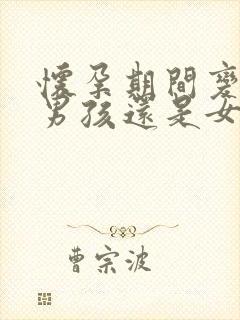 懷孕期間變
男孩還是女
曹宗波